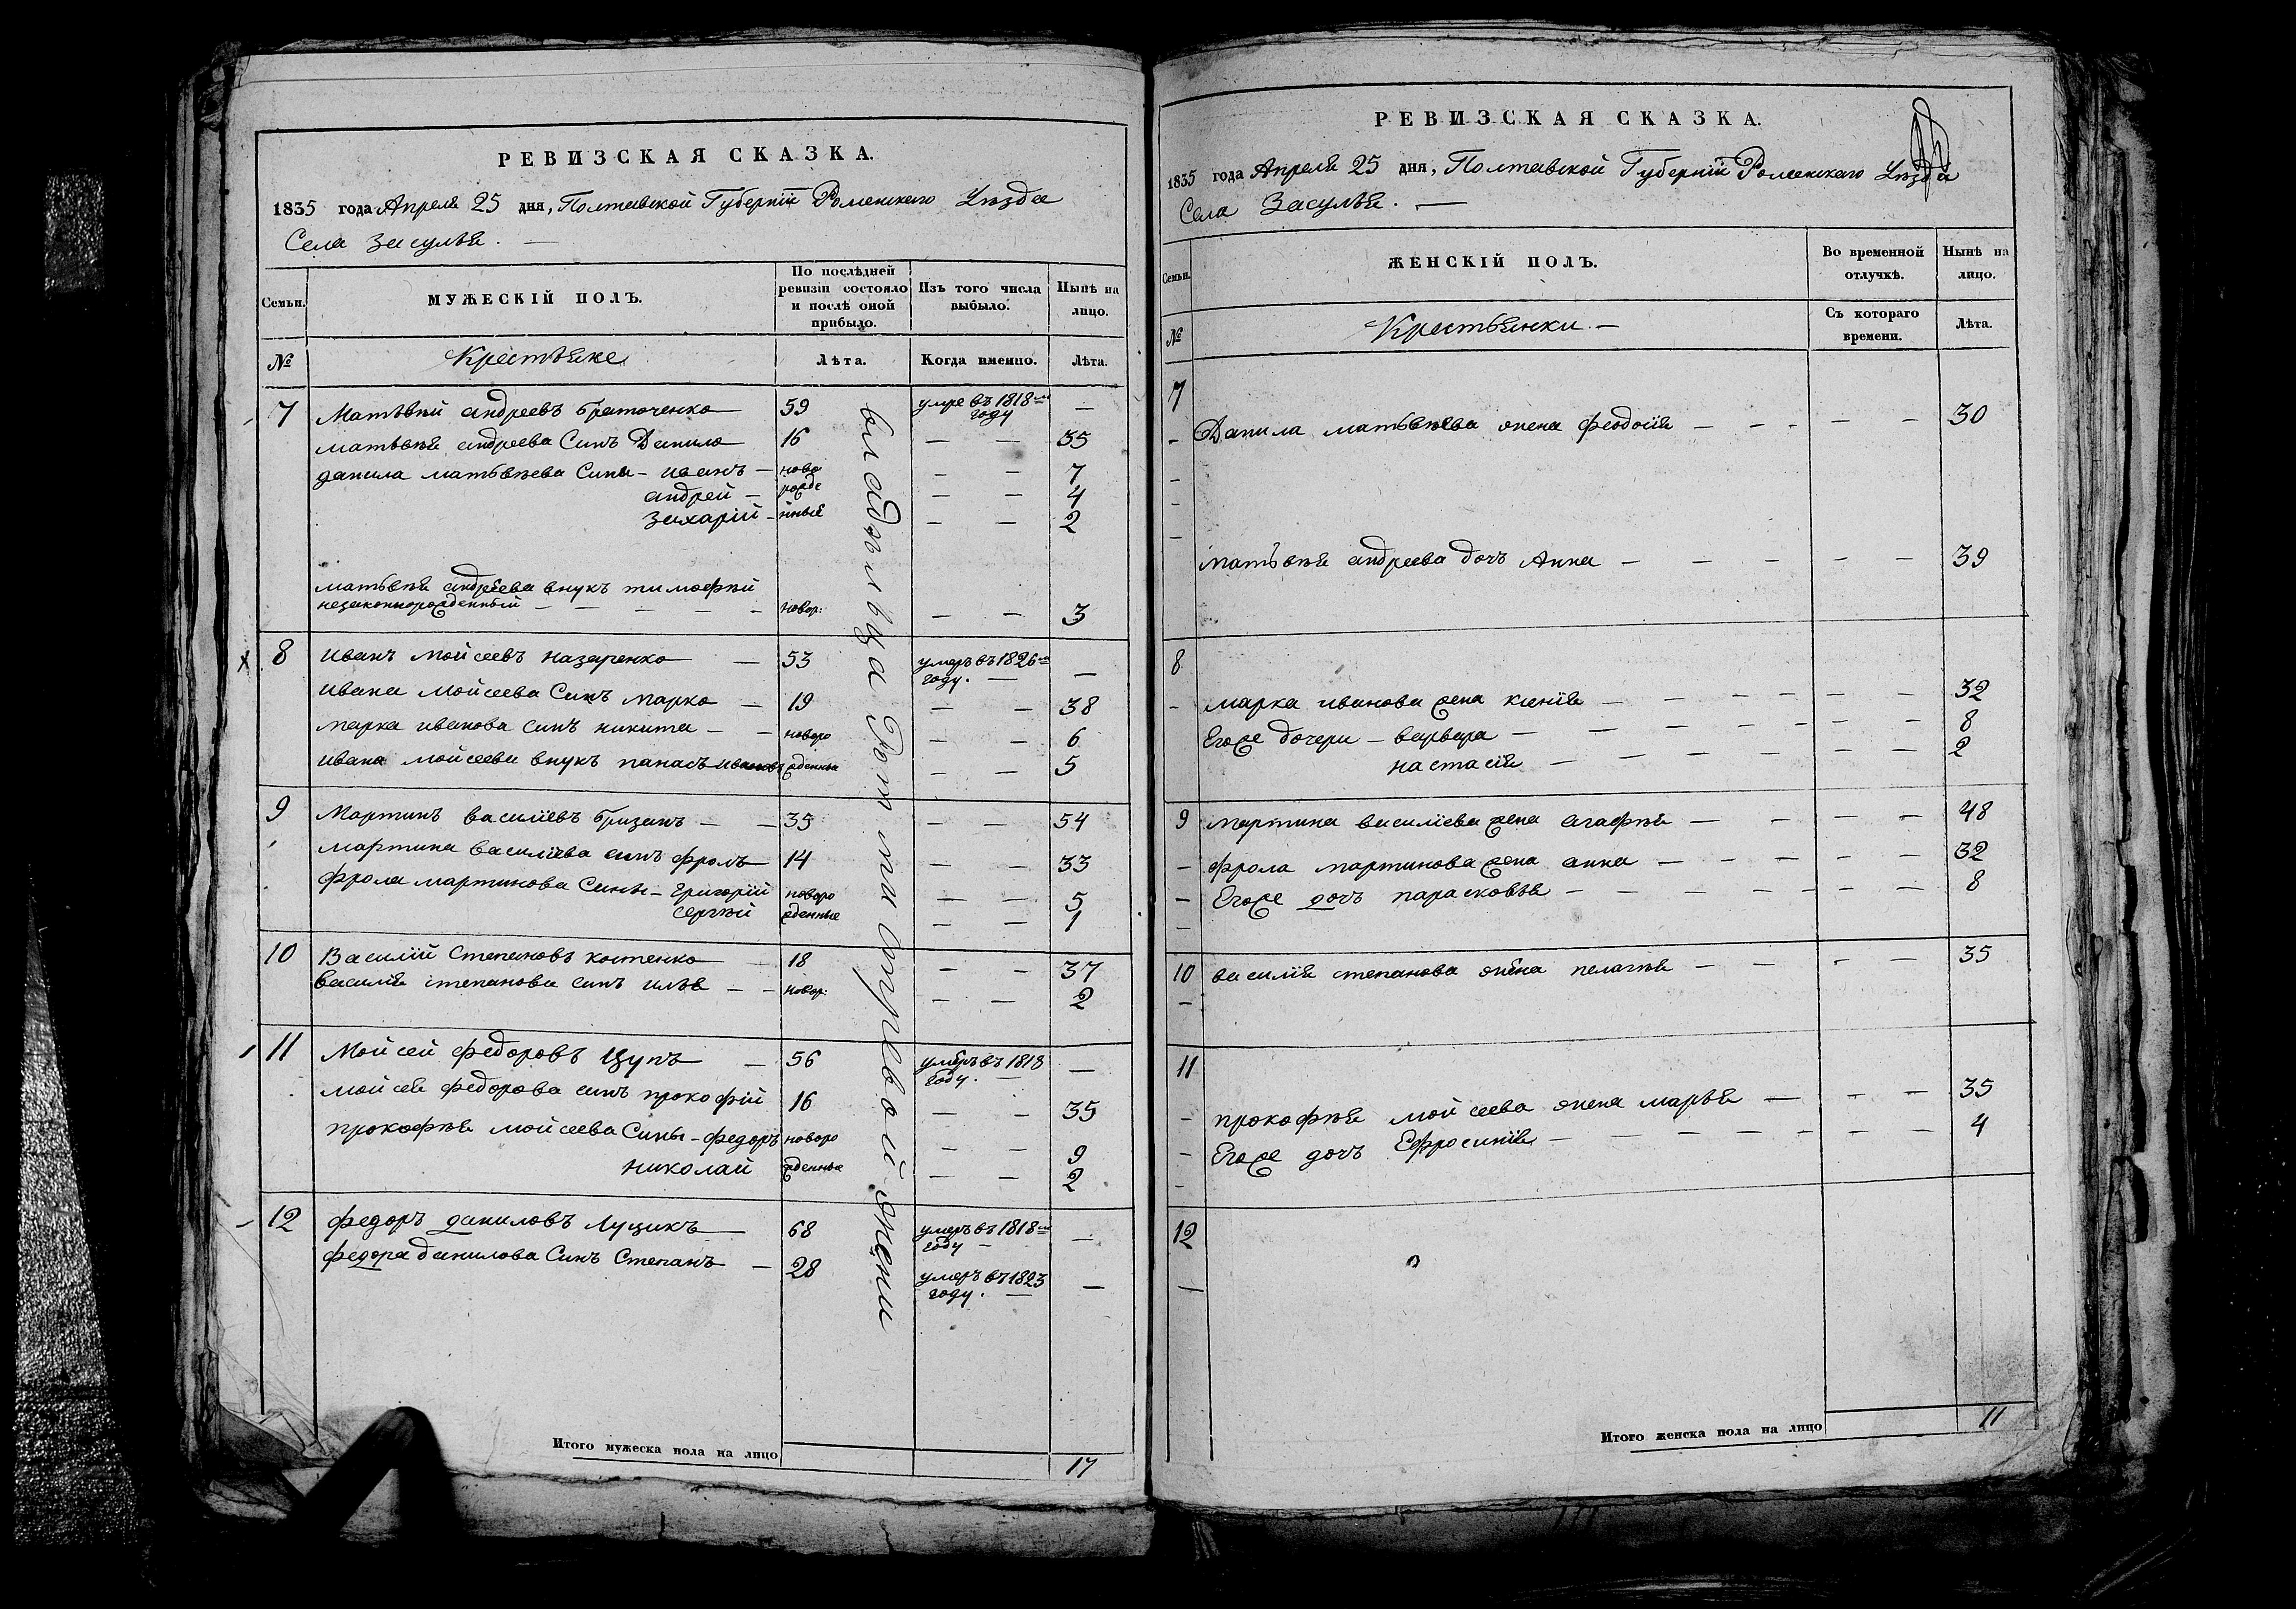 РЕВИЗСКАЯ СКАЗКА.
1835 года Апреля 25 дня, Полтавской Губерніи Роменскаго Уезда
Села Засулья.
Семьи.
МУЖЕСКІЙ ПОЛЪ.
По послѣдней ревизіи состояло и послѣ оной прибыло.
Изъ того числа выбыло.
Нынѣ на лицо.
№
Крестьяне
Лѣта.
Когда именно.
Лѣта.
7 Матвѣй андреевъ 59 умре въ 1818м году —
матвѣя андреева Синъ Данило 16 — — 35
данила матвѣева Сины - иванъ — ново — — 7
андрей — рожде — — 4
Захарій — нные — — 2
матвѣя андреева внукъ тимофѣй
незаконнорожденный — — — — — новор: — — 3
8 иванъ мойсеевъ назаренко — 53 умеръ въ 1826м году. — —
ивана мойсеева Синъ марко — 19 — — 38
марка иванова синъ никита — — новоро — — 6
ивана мойсеева внукъ панасъ ивановъ жденные — — 5
9 Мартинъ василіевъ бризанъ — — 35 — — 54
мартина василіева синъ фролъ 14 — — 33
фрола мартинова Сины — григорій новоро — — 5
сергѣй жденные — — 1
10 Василій Степановъ костенко 18 — — 37
василія степанова синъ илья — — новор: — — 2
11 Мойсей федоровъ Цупъ — 56 умеръ въ 1818 году. — —
мойсея федорова синъ прокофій 16 — — 35
прокофѣя мойсеева Сины — федоръ новоро — — 9
николай жденные — — 2
12 федоръ даниловъ Луцикъ 68 умеръ въ 1818м году — —
федора данилова Синъ Степанъ — 28 умеръ въ 1823 году. — —
Итого мужеска пола на лицо 17
РЕВИЗСКАЯ СКАЗКА.
1835 года Апреля 25 дня, Полтавской Губерніи Роменскаго Уезда
Села Засулья. —
Семьи.
ЖЕНСКІЙ ПОЛЪ.
Во временной отлучкѣ.
Нынѣ на лицо.
№
Крестьянки. —
Съ котораго времени.
Лѣта.
7
Данила матвѣева жена феодосія — — — — — 30
матвѣя андреева дочъ Анна — — — — — 39
8
марка иванова жена ксенія — — — — — 32
Егоже дочери — варвара — — — — — 8
настасія — — — — — 2
9 мартина василіева жена агафія — — — — 48
фрола мартинова жена анна — — — — — 32
Егоже дочъ парасковья — — — — — 8
10 василія степанова жена пелагѣя — — — — 35
11
прокофѣя мойсеева жена марья — — — 35
Егоже дочъ Ефросинія — — — — — 4
12
Итого женска пола на лицо 11